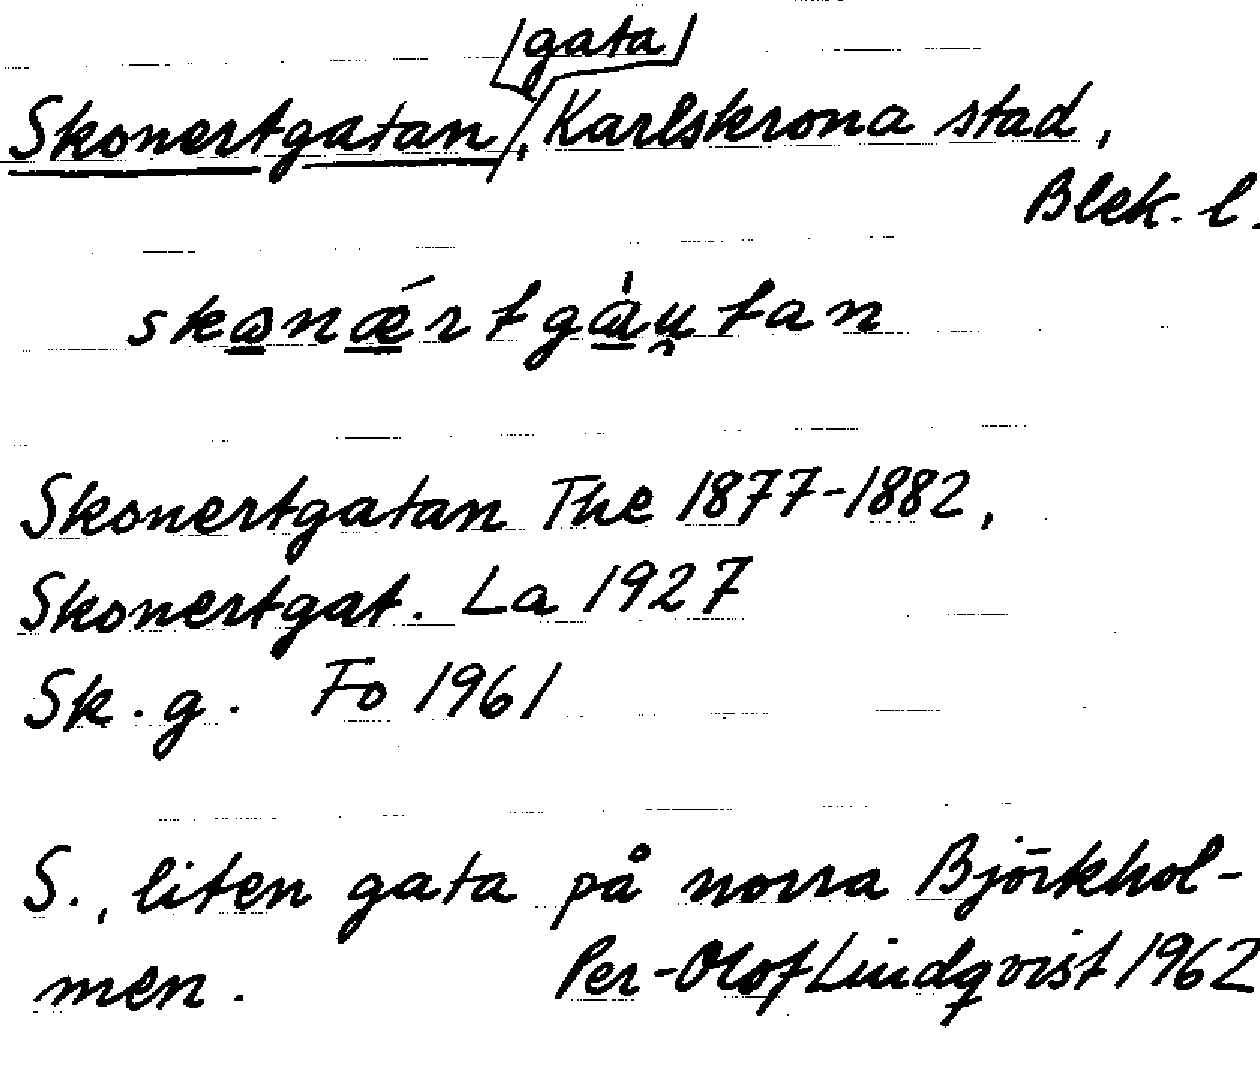 gata
Skonertgatan, Karlskrona stad,
Blek. l.
skənǽrtgàu̯tan
Skonertgatan The 1877-1882,
Skonertgat. La 1927
Sk. g. Fo 1961
S., liten gata på norra Björkhol-
men. Per-Olof Lindqvist 1962